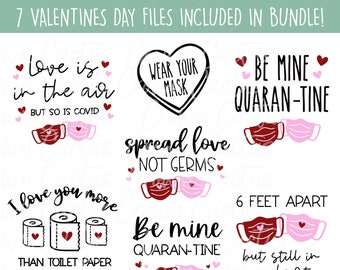 7 VALENTINES DAY FILES INCLUDED IN BUNDLE!
Love is
in the air
BUT SO IS COVID
WEAR YOUR
MASK
BE MINE
QUARAN-TINE
spread love
NOT GERMS
I love you more
THAN TOILET PAPER
Be mine
QUARAN-TINE
6 FEET APART
but still in